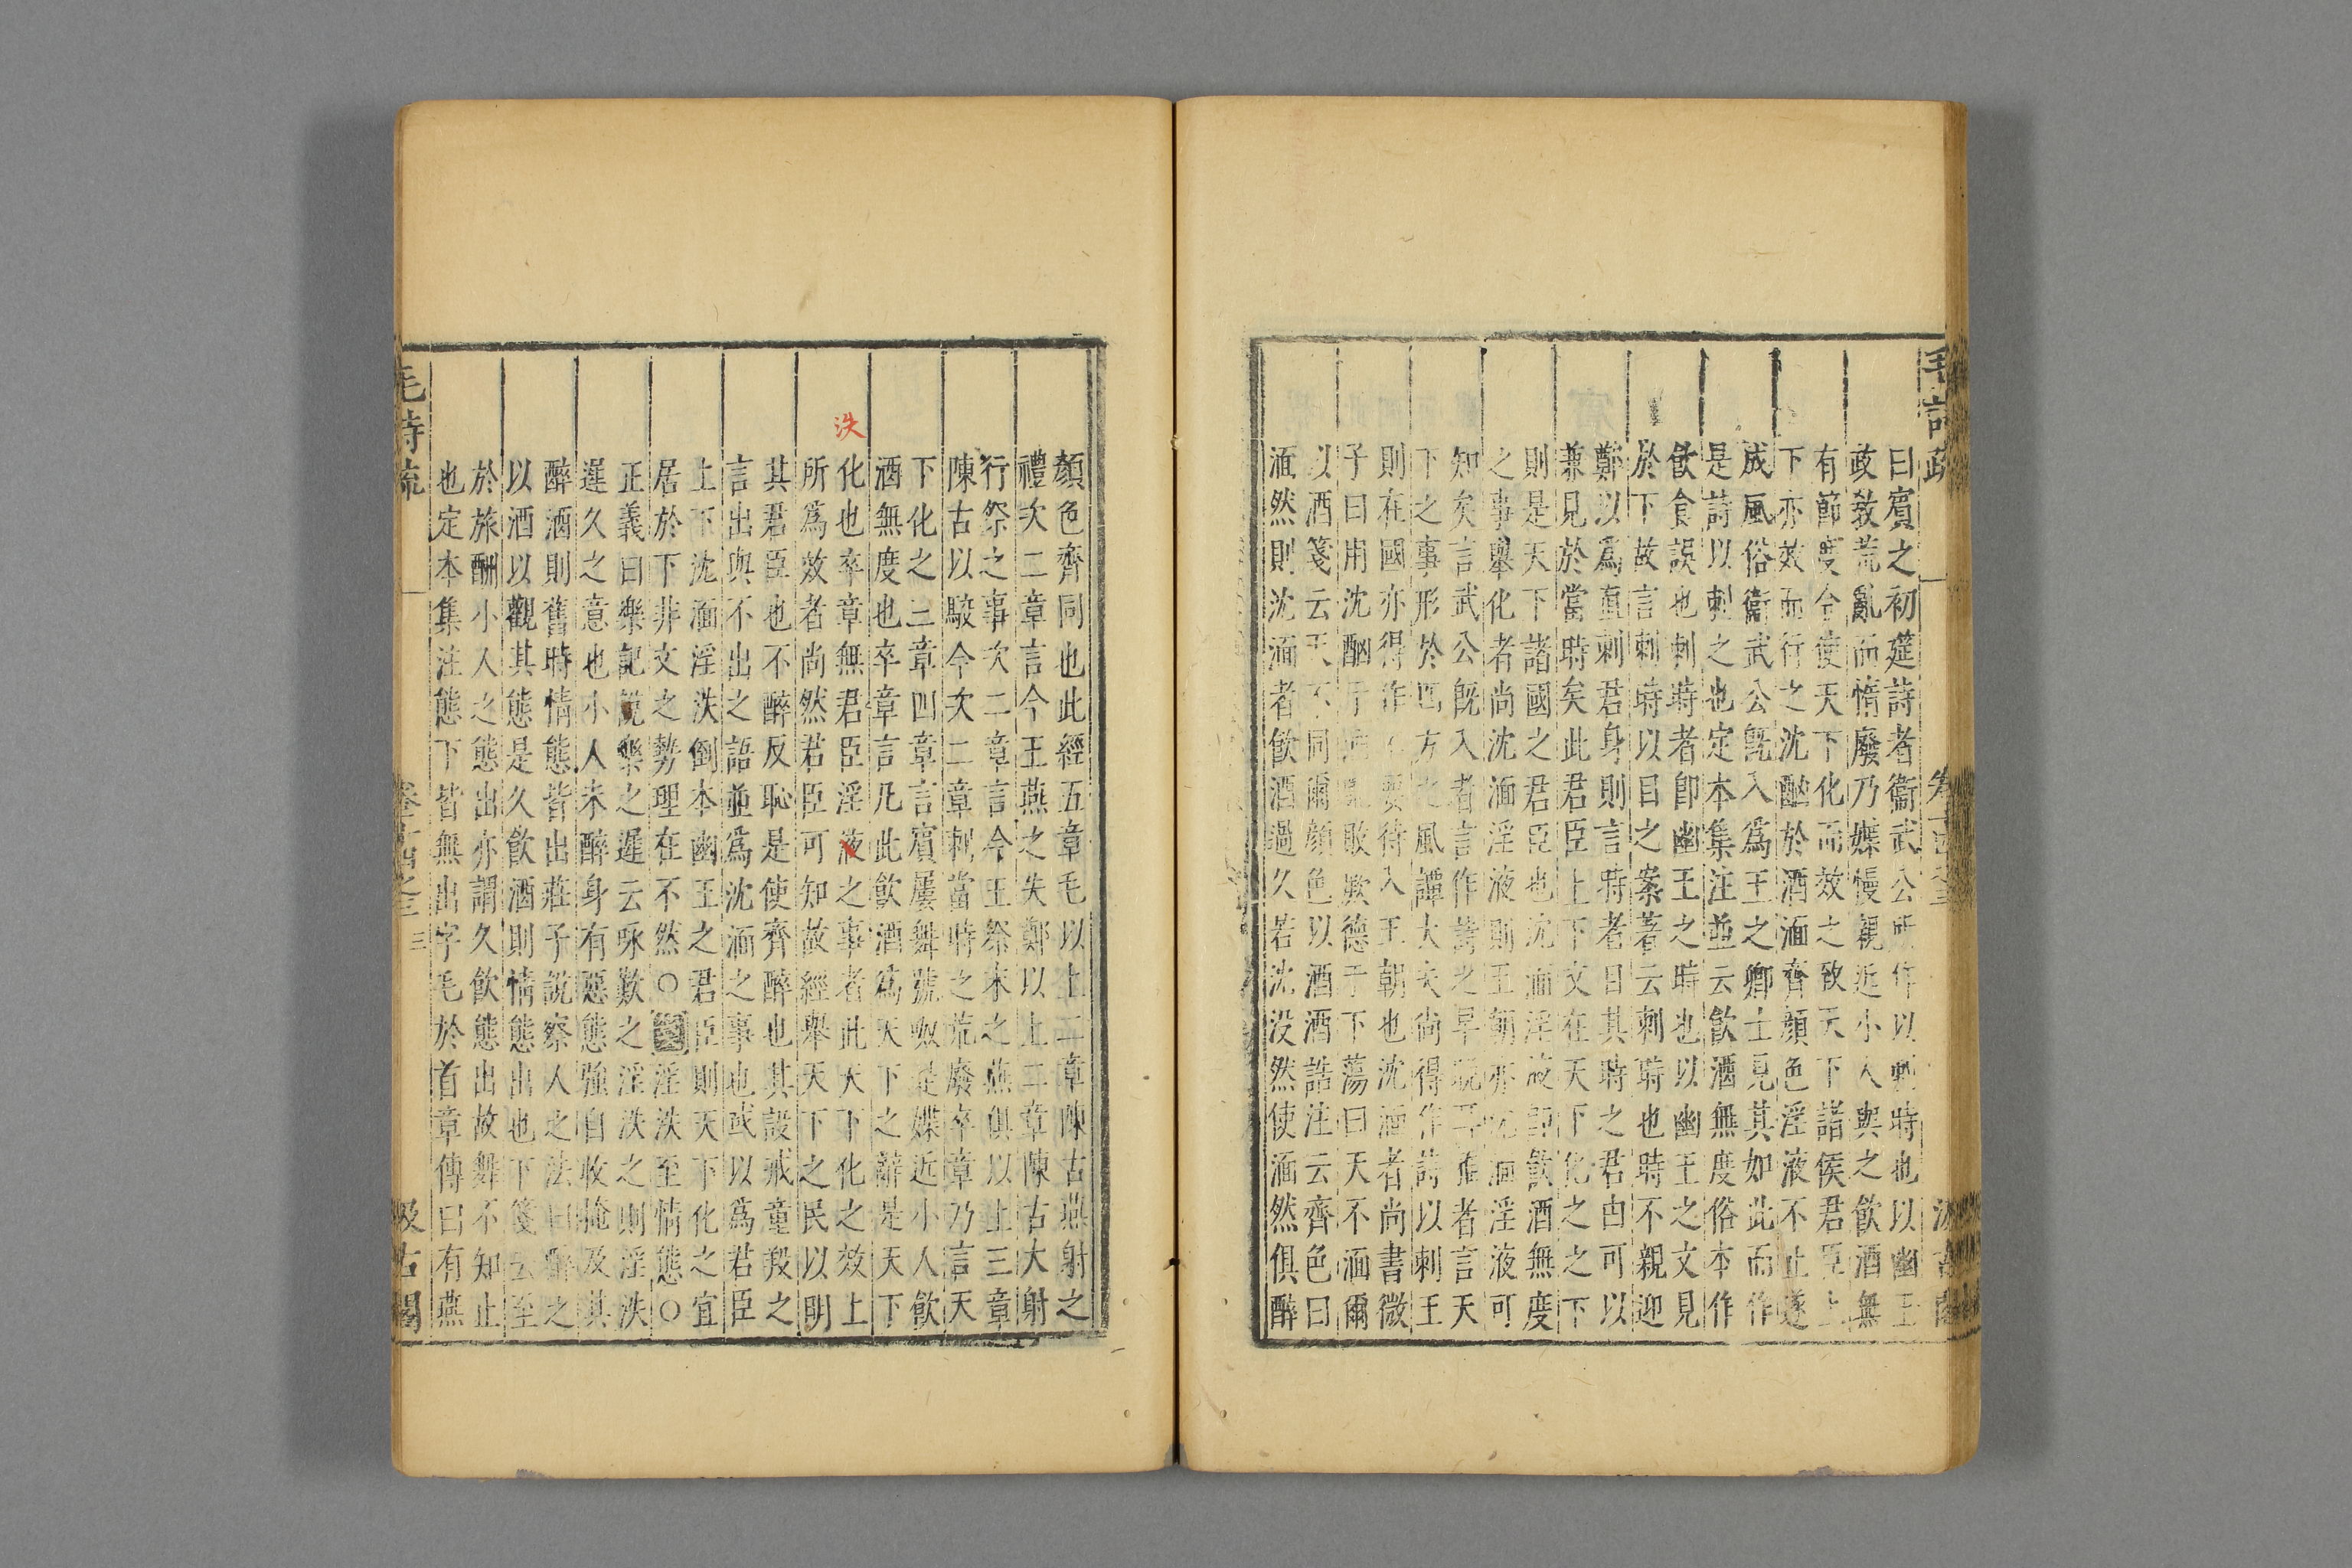 毛詩疏
卷十四之三
汲古閣
曰賓之初筵詩者衞武公所作以刺時也以幽王
政敎荒亂而惰廢乃媟慢親近小人與之飮酒無
有節度令使天下化而效之致天下諸侯君臣上
下亦效而行之沈酗於酒湎齊顔色淫液不止遂
成風俗衞武公旣入爲王之卿士見其如此而作
是詩以刺之也定本集注並云飮酒無度俗本作
飮食誤也刺時者卽幽王之時也以幽王之文見
於下故言刺時以目之案著云刺時也時不親迎
鄭以爲直刺君身則言時者目其時之君由可以
兼見於當時矣此君臣上下文在天下化之之下
則是天下諸國之君臣也沈湎淫液卽飮酒無度
之事舉化者尚沈湎淫液則王朝亦沈湎淫液可
知矣言武公旣入者言作詩之早晩耳舊者言天
下之事形於四方之風譚大夫尚得作詩以刺王
則在國亦得作不要待入王朝也沈湎者尚書微
子曰用沈酗于酒亂敗厥德于下蕩曰天不湎爾
以酒箋云天不同爾顔色以酒酒誥注云齊色曰
湎然則沈湎者飮酒過久若沈没然使湎然俱醉
顔色齊同也此經五章毛以上二章陳古燕射之
禮次二章言今王燕之失鄭以上二章陳古大射
行祭之事次二章言今王祭末之燕俱以上三章
陳古以駮今次二章刺當時之荒廢卒章乃言天
下化之三章四章言賓屢舞號呶是媟近小人飮
酒無度也卒章言凡此飮酒爲天下之辭是天下
化也卒章無君臣淫液之事者此天下化之效上
洗
所爲效者尚然君臣可知故經舉天下之民以明
其君臣也不醉反恥是使齊醉也其設戒童羖之
言出與不出之語並爲沈湎之事也或以爲君臣
上下沈湎淫泆倒本幽王之君臣則天下化之宜
居於下非文之勢理在不然○箋淫泆至情態○
正義曰樂記説樂之遲云咏歎之淫泆之則淫泆
遲久之意也小人未醉身有惡態強自收掩及其
醉酒則舊時情態皆出莊子說察人之法曰醉之
以酒以觀其態是久飮酒則情態出也下箋云至
於旅酬小人之態出亦謂久飮態出故舞不知止
也定本集注態下皆無出字毛於首章傳曰有燕
毛詩疏
卷十四之三
三
汲古閣